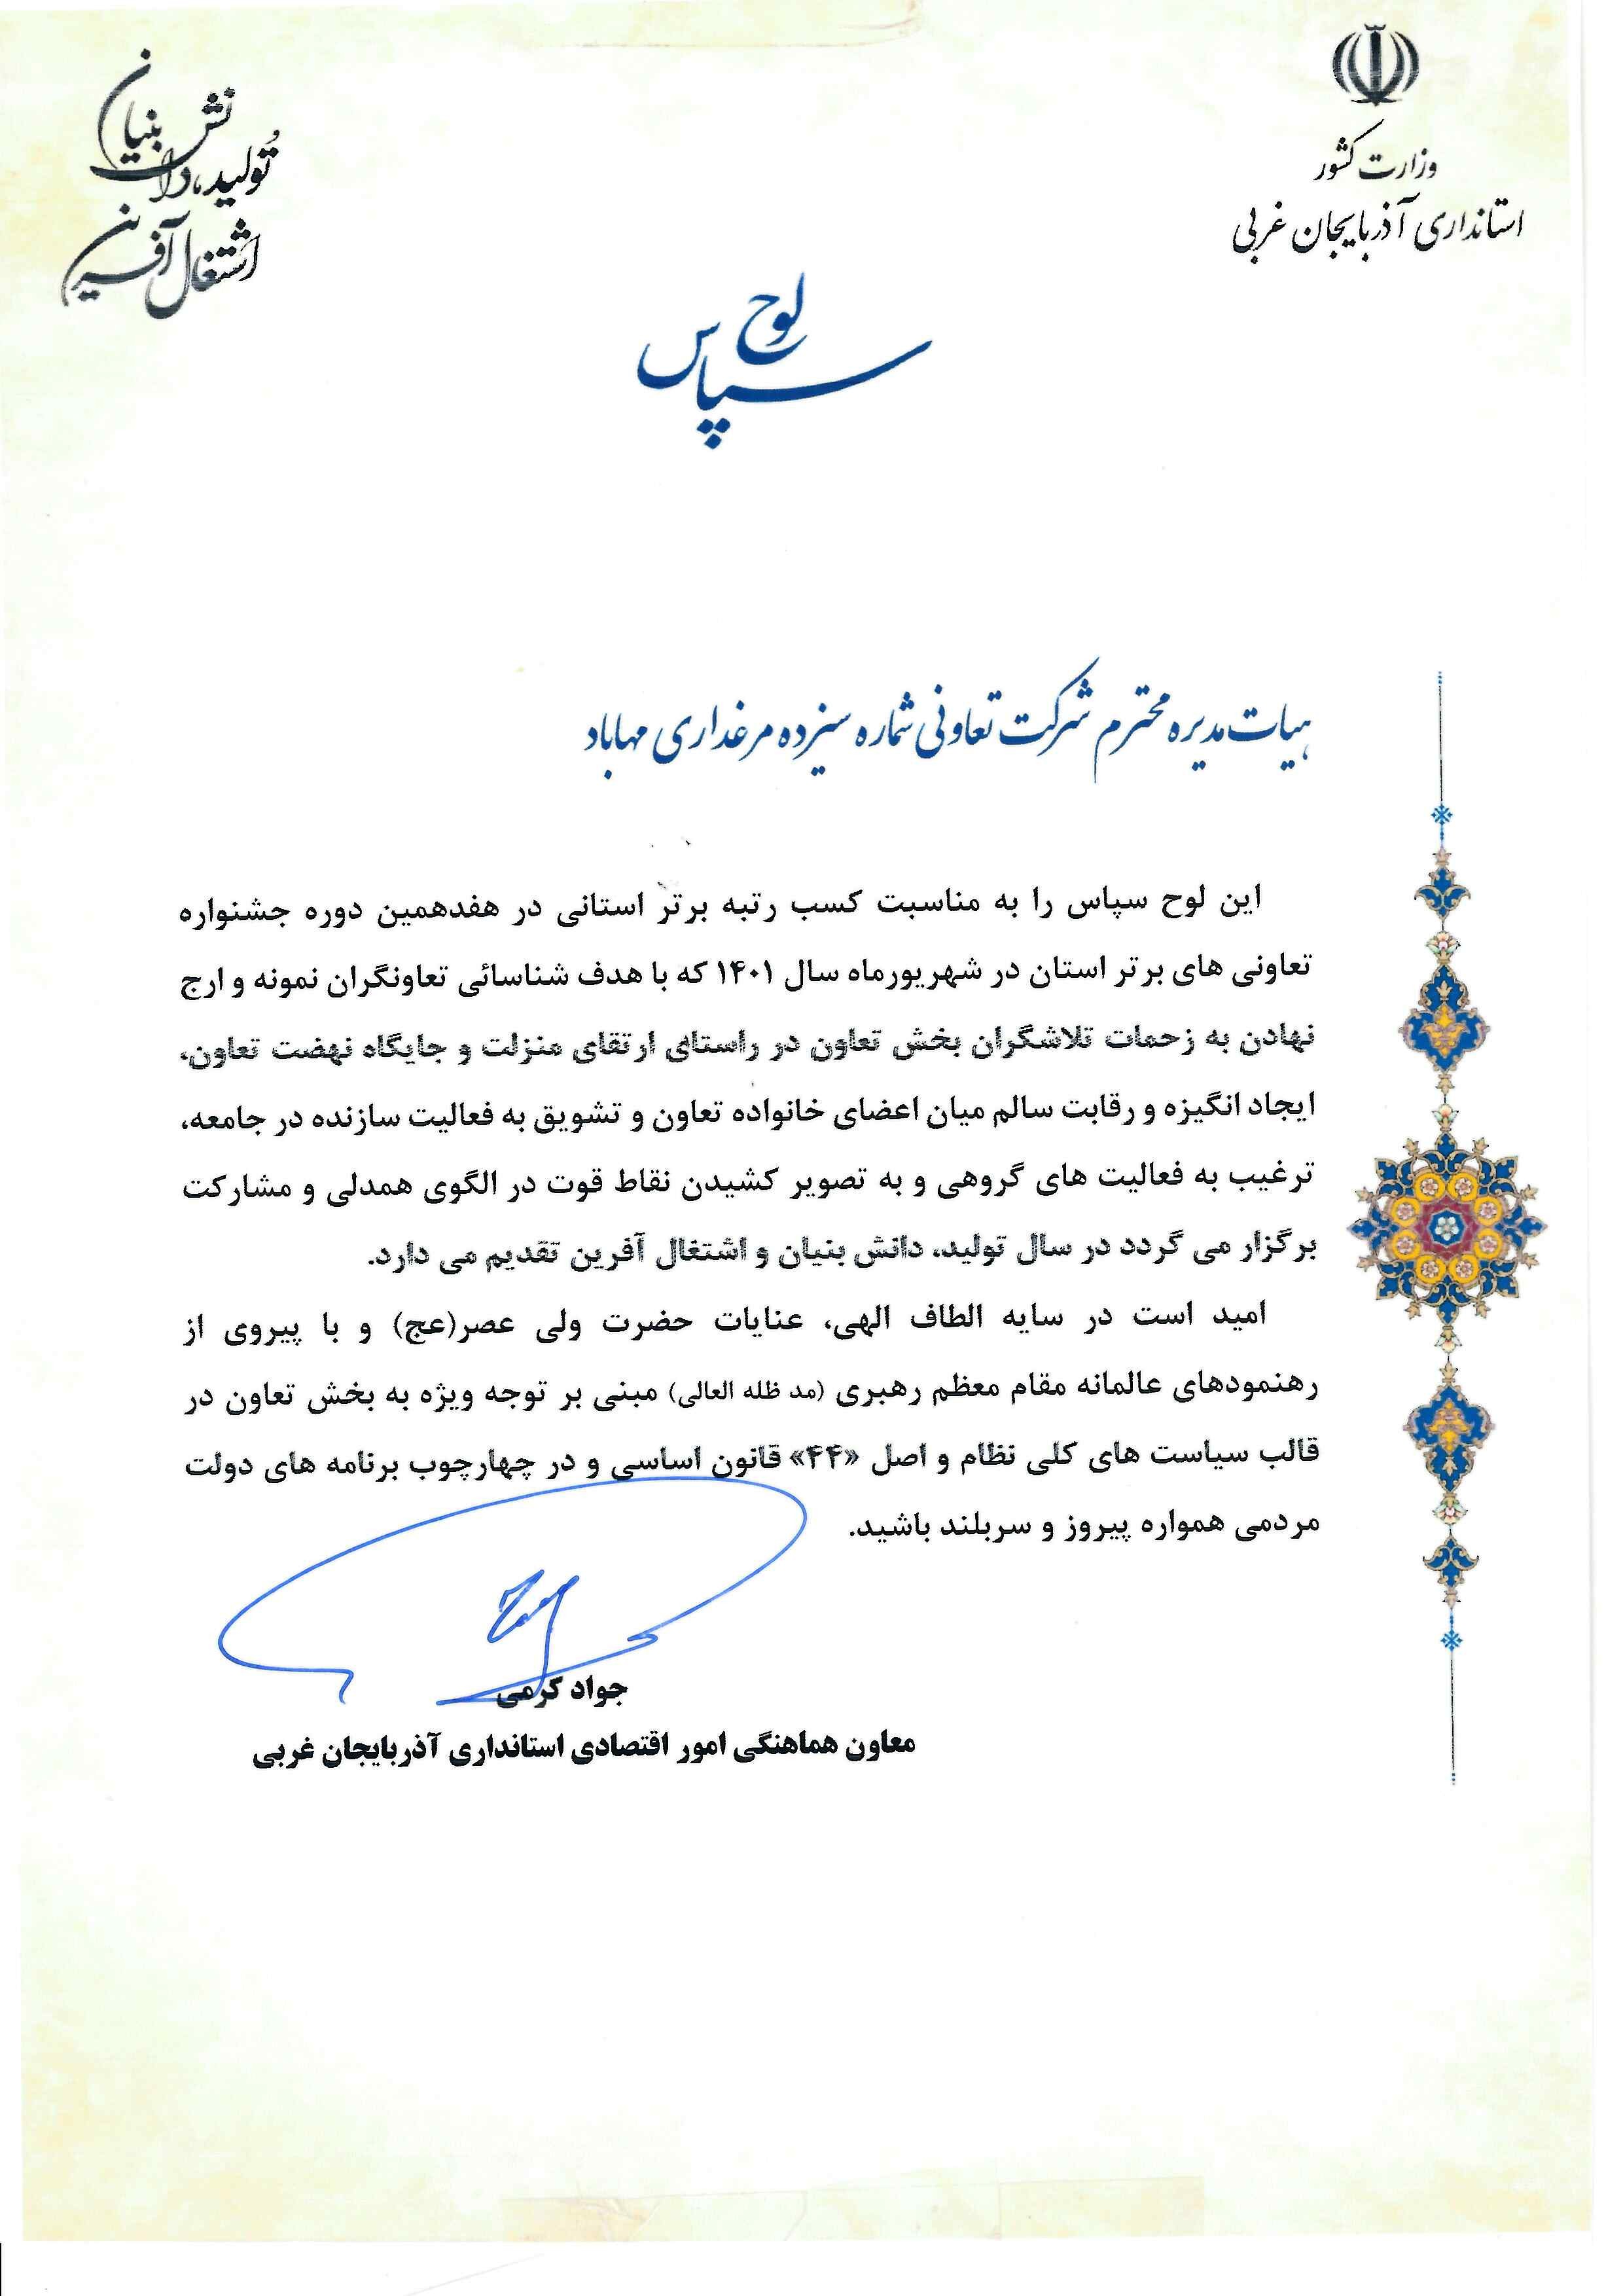 وزارت کشور
استانداری آذربایجان غربی
تولید، دانش بنیان
اشتغال آفرین
لوح
سپاس
هیات مدیره محترم شرکت تعاونی شماره سیزده مرغداری مهاباد
این لوح سپاس را به مناسبت کسب رتبه برتر استانی در هفدهمین دوره جشنواره
تعاونی های برتر استان در شهریورماه سال ۱۴۰۱ که با هدف شناسائی تعاونگران نمونه و ارج
نهادن به زحمات تلاشگران بخش تعاون در راستای ارتقای منزلت و جایگاه نهضت تعاون،
ایجاد انگیزه و رقابت سالم میان اعضای خانواده تعاون و تشویق به فعالیت سازنده در جامعه،
ترغیب به فعالیت های گروهی و به تصویر کشیدن نقاط قوت در الگوی همدلی و مشارکت
برگزار می گردد در سال تولید، دانش بنیان و اشتغال آفرین تقدیم می دارد.
امید است در سایه الطاف الهی، عنایات حضرت ولی عصر(عج) و با پیروی از
رهنمودهای عالمانه مقام معظم رهبری (مد ظله العالی) مبنی بر توجه ویژه به بخش تعاون در
قالب سیاست های کلی نظام و اصل «۴۴» قانون اساسی و در چهارچوب برنامه های دولت
مردمی همواره پیروز و سربلند باشید.
جواد کرمی
معاون هماهنگی امور اقتصادی استانداری آذربایجان غربی